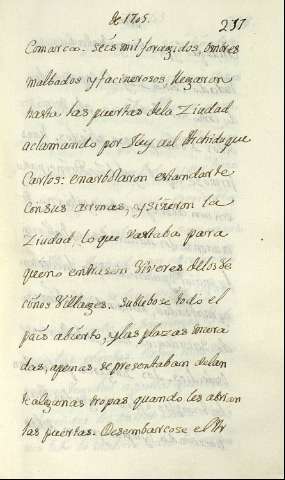 de 1705.
237
Comarca. seis mil foragidos, ombres
malbados y facinerosos llegaron
hasta las puertas dela Ziudad
aclamando por Rey al Archiduque
Carlos: enarbolaron estandarte
con sus armas, y siñeron la
Ziudad, lo que bastaba para
que no entrasen Viveres delos Ve
cinos Villages. Sublebose todo el
pais abierto, y las plazas mura
das, apenas se presentaban delan
te algunas tropas quando les abrian
las puertas. Desembarcose el Pr